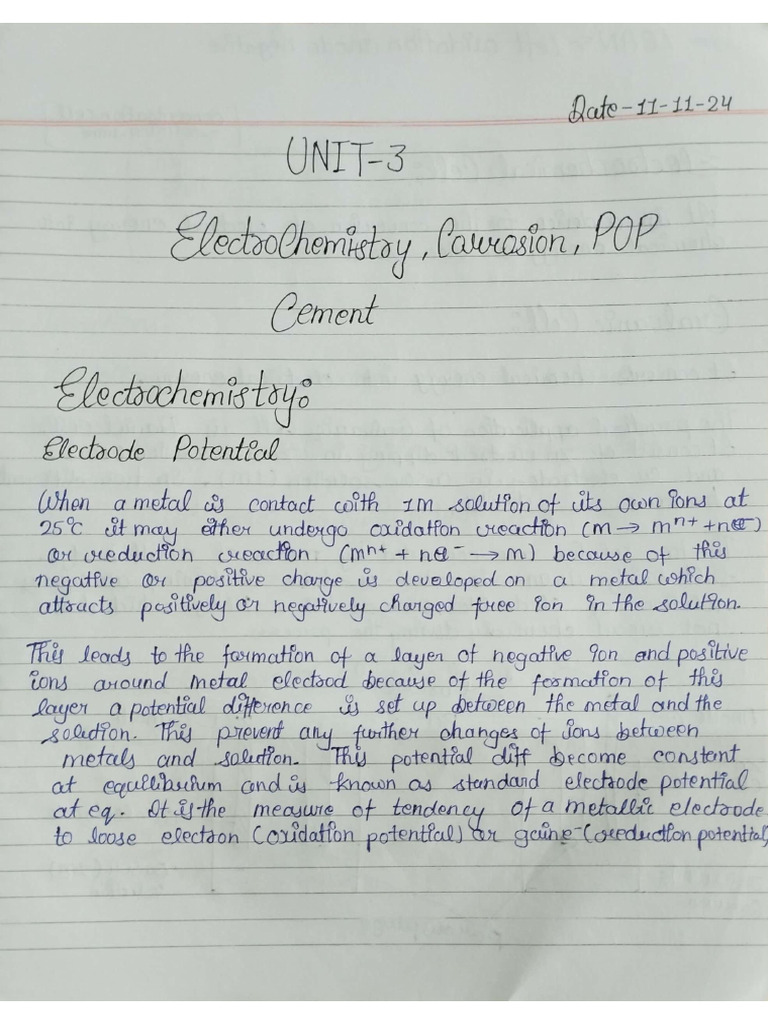 Date-11-11-24
UNIT-3
ElectroChemistry, Carrosion, POP
Cement
Electrochemistry:
Electrode Potential
When a metal is contact with 1M solution of its own ions at
25°C it may either undergo oxidation reaction (m → mⁿ⁺ + ne⁻)
or reduction reaction (mⁿ⁺ + ne⁻ → m) because of this
negative or positive charge is developed on a metal which
attracts positively or negatively charged free ion in the solution.
This leads to the formation of a layer of negative ion and positive
ions around metal electrod because of the formation of this
layer a potential difference is set up between the metal and the
solution. This prevent any further changes of ions between
metals and solution. This potential diff become constant
at equilibrium and is known as standard electrode potential
at eq. It is the measure of tendency of a metallic electrode
to loose electron (oxidation potential) or gaine (reduction potential)